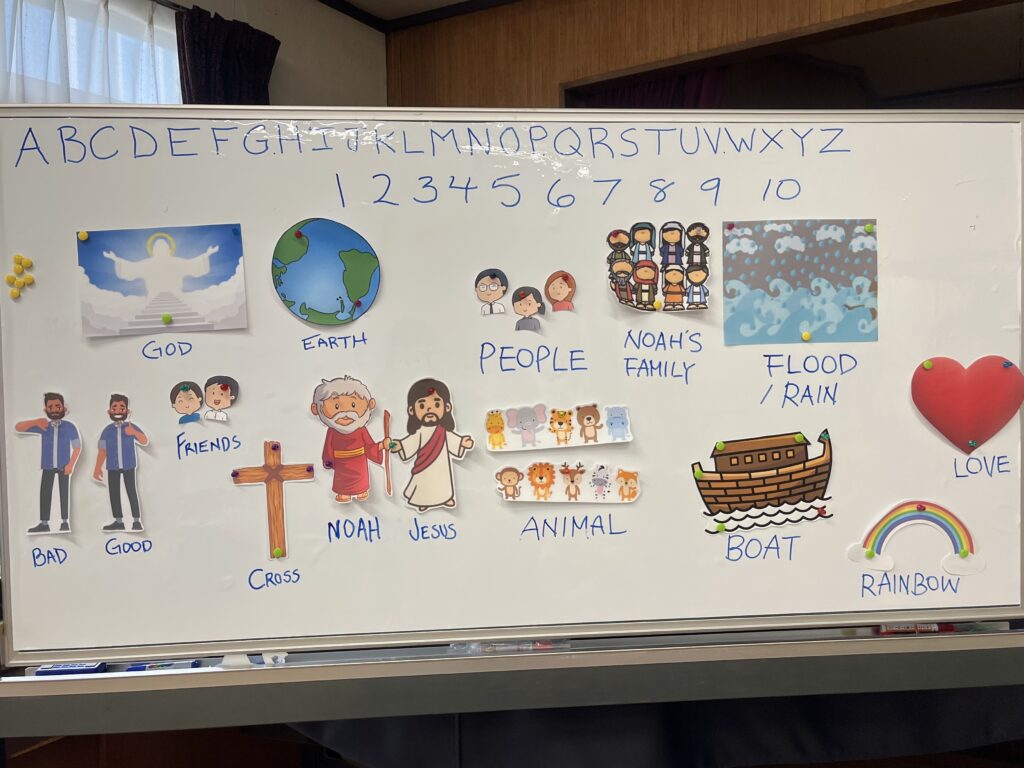 ABCDEFGHIJKLMNOPQRSTUVWXYZ
1 2 3 4 5 6 7 8 9 10
GOD
EARTH
PEOPLE
NOAH'S
FAMILY
FLOOD
/ RAIN
FRIENDS
LOVE
BAD
GOOD
CROSS
NOAH
JESUS
ANIMAL
BOAT
RAINBOW